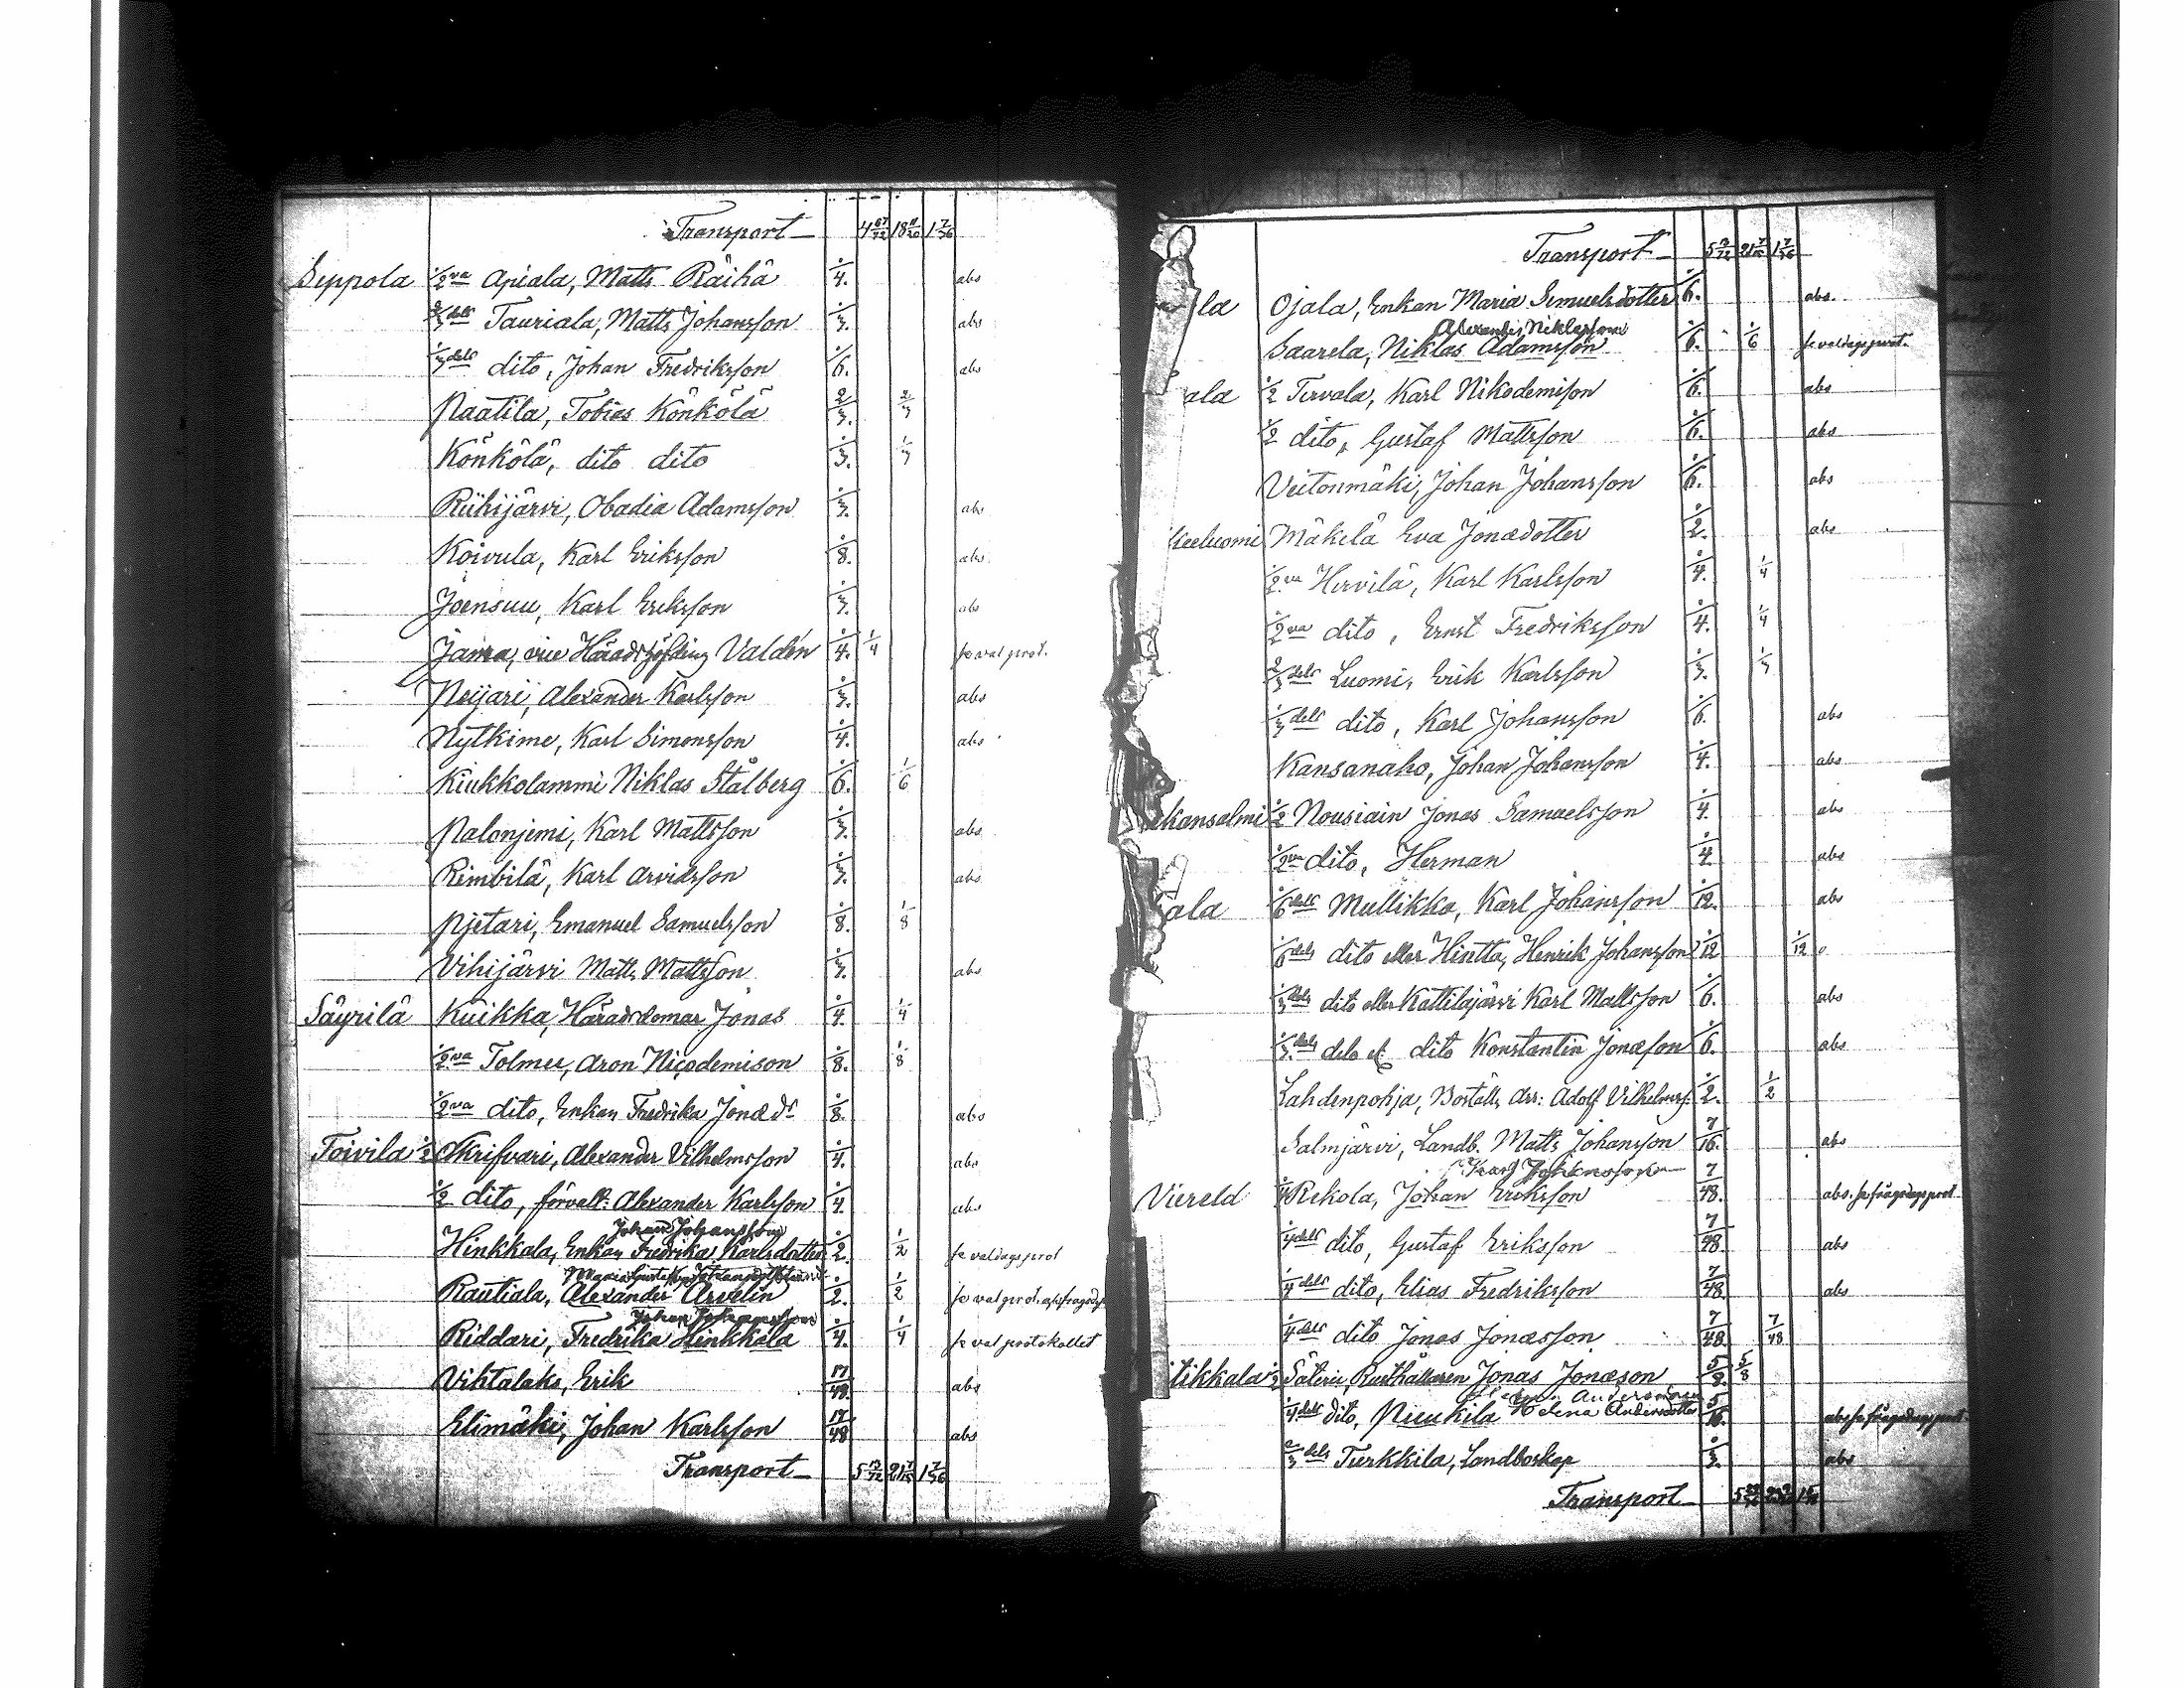 Transport 4 67/72 18 11/20 1 7/36
Seppola 1/2va Apiala, Matts Räihä 1/4. abs
2/3dels Tauriala, Matts Johansson 1/3. abs
1/3dels dito, Johan Fredriksson 1/6. abs
Paatila, Tobias Könkölä 2/3. 2/3
Könkölä, dito dito 1/3. 1/3
Riihijärvi, Obadia Adamsson 1/3. abs
Koivula, Karl Eriksson 1/8. abs
Joensuu, Karl Eriksson 1/3. abs
Jamsa, vice Häradshöfding Valdén 1/4. 1/4 se val prot.
Neijari, Alexander Karlsson 1/3. abs
Nytkime, Karl Simonsson 1/4. abs
Kiukkolammi Niklas Stålberg 1/6. 1/6
Palonjemi, Karl Mattsson 1/3. abs
Rimbilä, Karl Arvidsson 1/3. abs
Pjetari, Emanuel Samuelsson 1/8. 1/8
Vihijärvi Matts Mattsson 1/3. abs
Säyrilä Kuikka, Häradsdomar Jonas 1/4. 1/4
1/2va Tolmee, Aron Nicodemison 1/8. 1/8
1/2va dito, Enkan Fredrika Jonæds 1/8. abs
Toivila 1/2 Skrifvari, Alexander Vilhelmsson 1/4. abs
1/2 dito, förvalt: Alexander Karlsson 1/4. abs
Johan Johansson
Hinkkala, Enkan Fredrika Karlsdotter 1/2. 1/2 se valdagsprot
Maria Gustafva
Rautiala, Alexander Arvelin 1/2. 1/2 se val prot.
Johan Johansson
Riddari, Fredrika Hinkkala 1/4. 1/4 se val protokollet
Vihtalaks, Erik 17/48. abs
Elimäki, Johan Karlsson 17/48 abs
Transport 1 7/36
Transport 1 7/36
la Ojala, Enkan Maria Semuelsdotter 1/6. abs.
Alexander Niklasson
Saarela, Niklas Adamsson 1/6. 1/6 se valdagsprot.
ala 1/2 Tervala, Karl Nikodemison 1/6. abs
1/2 dito, Gustaf Mattsson 1/6. abs
Veitonmäki, Johan Johansson 1/6. abs
keeluomi Mäkelä Eva Jonædotter 1/2. abs
1/2va Hirvilä, Karl Karlsson 1/4. 1/4
1/2va dito, Ernst Fredriksson 1/4. 1/4
2/3dels Luomi, Erik Karlsson 1/3. 1/3
1/3dels dito, Karl Johansson 1/6. abs
Kansanaho, Johan Johansson 1/4. abs
kansalmi 1/2 Nousiain Jonas Samuelsson 1/4. abs
1/2va dito, Herman 1/4 abs
ala 1/6dels Mullikka, Karl Johansson 1/12. abs
1/6dels dito eller Hintta, Henrik Johansson 1/12 1/12
1/3dels dito eller Kattilajärvi Karl Mattsson 1/6. abs
1/3.dels dito Konstantin Jonæson 1/6. abs
Lahdenpohja, Boställs Arr: Adolf Vilhelmss. 1/2. 1/2
Salmjärvi, Landb. Matts Johansson 7/16. abs
Karl Johansson
Viereld 1/4 Rekola, Johan Eriksson 7/48. abs. se frågodagsprot
1/4dels dito, Gustaf Eriksson 7/48. abs
1/4dels dito, Elias Fredriksson 7/48. abs
1/4dels dito Jonas Jonæsson 7/48. 7/48
itikkala 1/2 Säteri, Rusthållaren Jonas Jonæson 5/8. 5/8
1/4dels dito, Niukkila Helena Andersdotter 5/16.
2/3dels Turkkila, Landboskap 1/3. abs
Transport